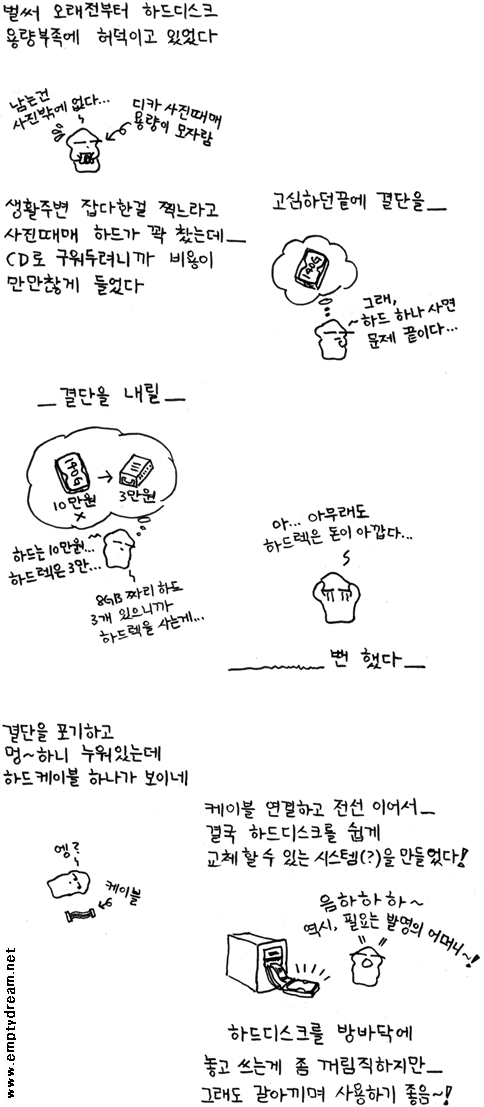 벌써 오래전부터 하드디스크
용량부족에 허덕이고 있었다
남는건
사진밖에 없다...
디카 사진때매
용량이 모자람
생활주변 잡다한걸 찍느라고
사진때매 하드가 꽉 찼는데__
CD로 구워두려니까 비용이
만만찮게 들었다
고심하던끝에 결단을__
140G
그래,
~하드 하나 사면
문제 끝이다...
__결단을 내릴__
140G
10만원
→
3만원
X
하드는 10만원...
하드렉은 3만...
8GB 짜리 하드
3개 있으니까
하드렉을 사는게...
아... 아무래도
하드렉은 돈이 아깝다...
________ 뻔 했다__
결단을 포기하고
멍~하니 누워있는데
하드케이블 하나가 보이네
엥?
케이블
케이블 연결하고 전선 이어서__
결국 하드디스크를 쉽게
교체 할 수 있는 시스템(?)을 만들었다!
음하하하~
역시, 필요는 발명의 어머니~!
하드디스크를 방바닥에
놓고 쓰는게 좀 꺼림직하지만__
그래도 갈아끼며 사용하기 좋음~!
www.emptydream.net